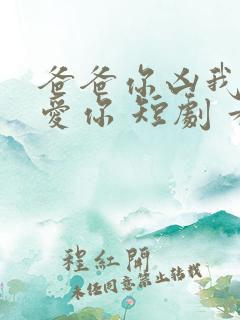 爸爸你凶我
愛你 短劇
程紅開
未经同意禁止转载